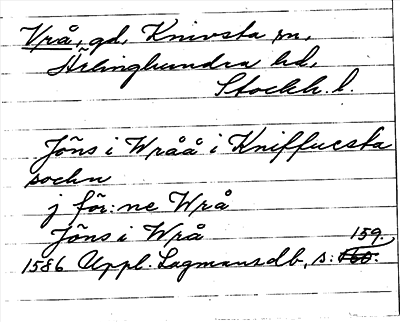 Vrå, gd, Knivsta sn,
Ärlinghundra hd,
Stockh. l.
Jöns i Wråå i Kniffuesta
sochn
j för:ne Wrå
Jöns i Wrå
159.
1586 Uppl. Lagmansdb, s: